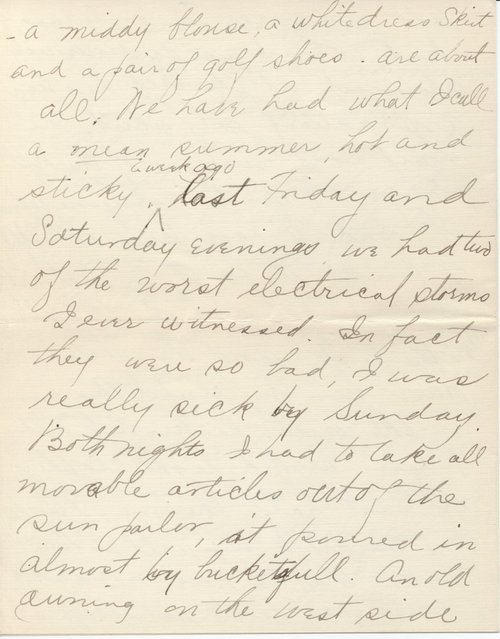 - a middy blouse, a white dress skirt
and a pair of golf shoes. are about
all. We have had what I call
a mean summer, hot and
a week ago
sticky. Last Friday and
Saturday evenings we had two
of the worst electrical storms
I ever witnessed. In fact
they were so bad, I was
really sick by Sunday.
Both nights I had to take all
movable articles out of the
sun parlor, it poured in
almost by bucketfull. An old
awning on the west side